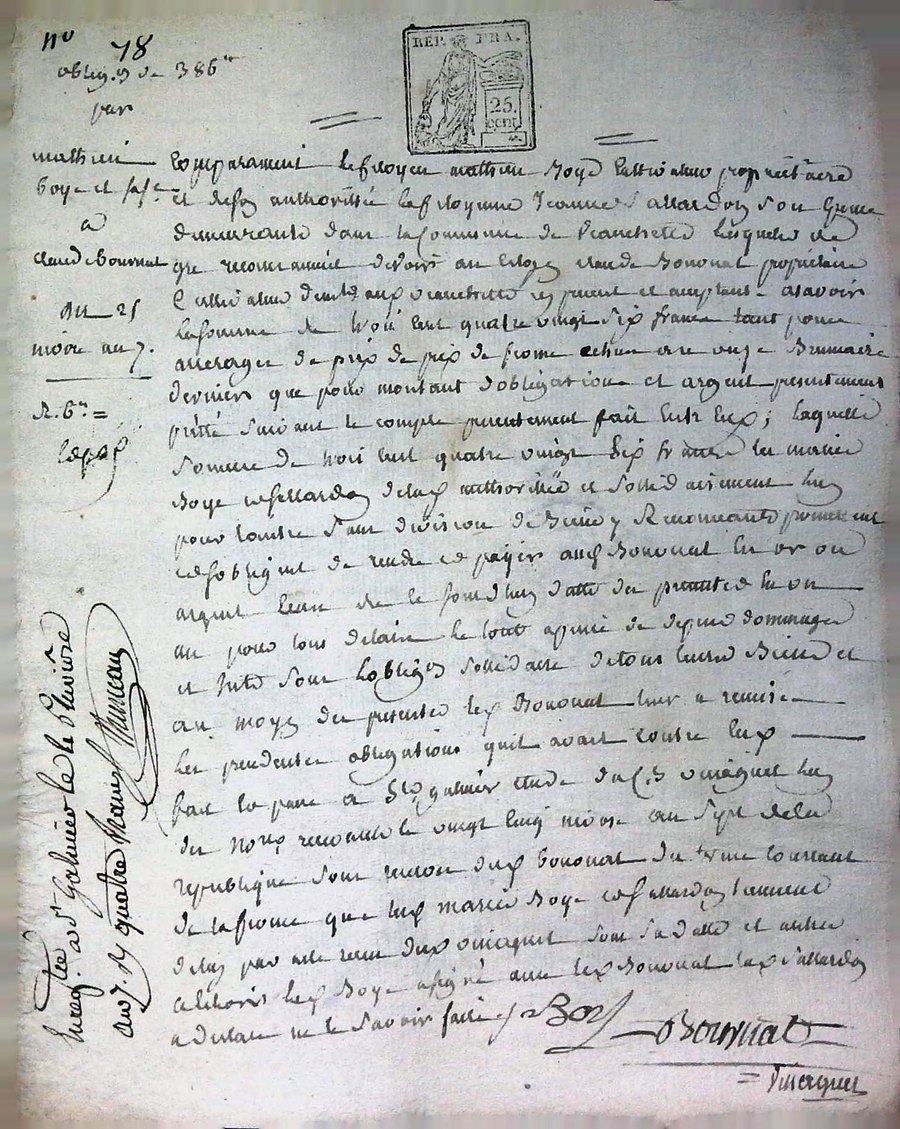 no 78
oblig.on de 386
par
mathieu
Boye et sa fe
a
claude Bournat
du 25
nivose an 7.
REP. FRA.
25.
cent.
Comparament le Citoyen mathieu Boye Cultivateur propriétaire
et de luy authorisée la Citoyenne Jeanne Sallardon son Epouse
demeurants dans la Commune de lesquels de
gre reconnaissent devoir au Citoyen claude Bonnat propriétaire
Cultivateur present et acceptant asavoir
la somme de trois cent quatre vingt six francs tant pour
arrerages de prix de prix de ferme echus onze Brumaire
derniers que pour montant d'obligations et argent presentement
prêtté suivant le compte presentement fait entr'eux; laquelle
somme de trois cent quatre vingt six francs les mariés
Boye et Sallardon de luy authorisée et sollidairement l'un
pour l'autre sans division de Biens y Renonceants promettent
et s'obligent de rendre et payer aud Bonnat en or ou
argent dans de ce jourd'huy datte des presentes en un
an pour tous delais le tout a peine de depens dommages
et Intts sous l'obligon sollidaire de tous leurs Biens et
au moyen des presentes led Bonnat leur a remis
les precedentes obligations qu'il avait contre eux
fait et passé a St galmier etude du C.n Vincquet l'un
des Nores recevants le vingt cinq nivose an Sept de la
republique sous reserve dud Bonnat du terme courrant
de la ferme que led mariés Boye et Sallardon tiennent
de luy par acte recu dud Vincquet sous sa datte et autres
led Boye a signé avec led Bonnat lad Sallardon
a declaré ne le savoir faire
Boy
Bournat
Enregistré a St Galmier le Pluviose
an 7. R quatre francs